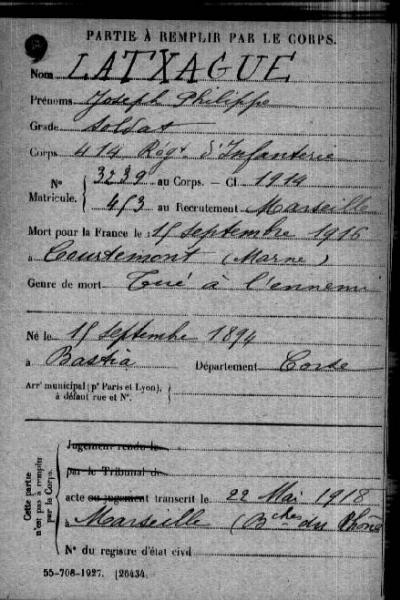 PARTIE À REMPLIR PAR LE CORPS.
Nom LATXAGUE
Prénoms Joseph Philippe
Grade soldat
Corps 414 Régt d'Infanterie
N° Matricule. { 3239 au Corps. — Cl. 1914
453 au Recrutement Marseille
Mort pour la France le : 15 septembre 1916
à Courtemont (Marne)
Genre de mort Tué à l'ennemi
Né le 15 septembre 1894
à Bastia Département Corse
Arrt municipal (pr Paris et Lyon),
à défaut rue et N°.
Cette partie n'est pas à remplir par le Corps.
Jugement rendu le
par le Tribunal de
acte ou jugement transcrit le 22 Mai 1918
à Marseille (Bches du Rhône
N° du registre d'état civil
55-708-1927. [26434.